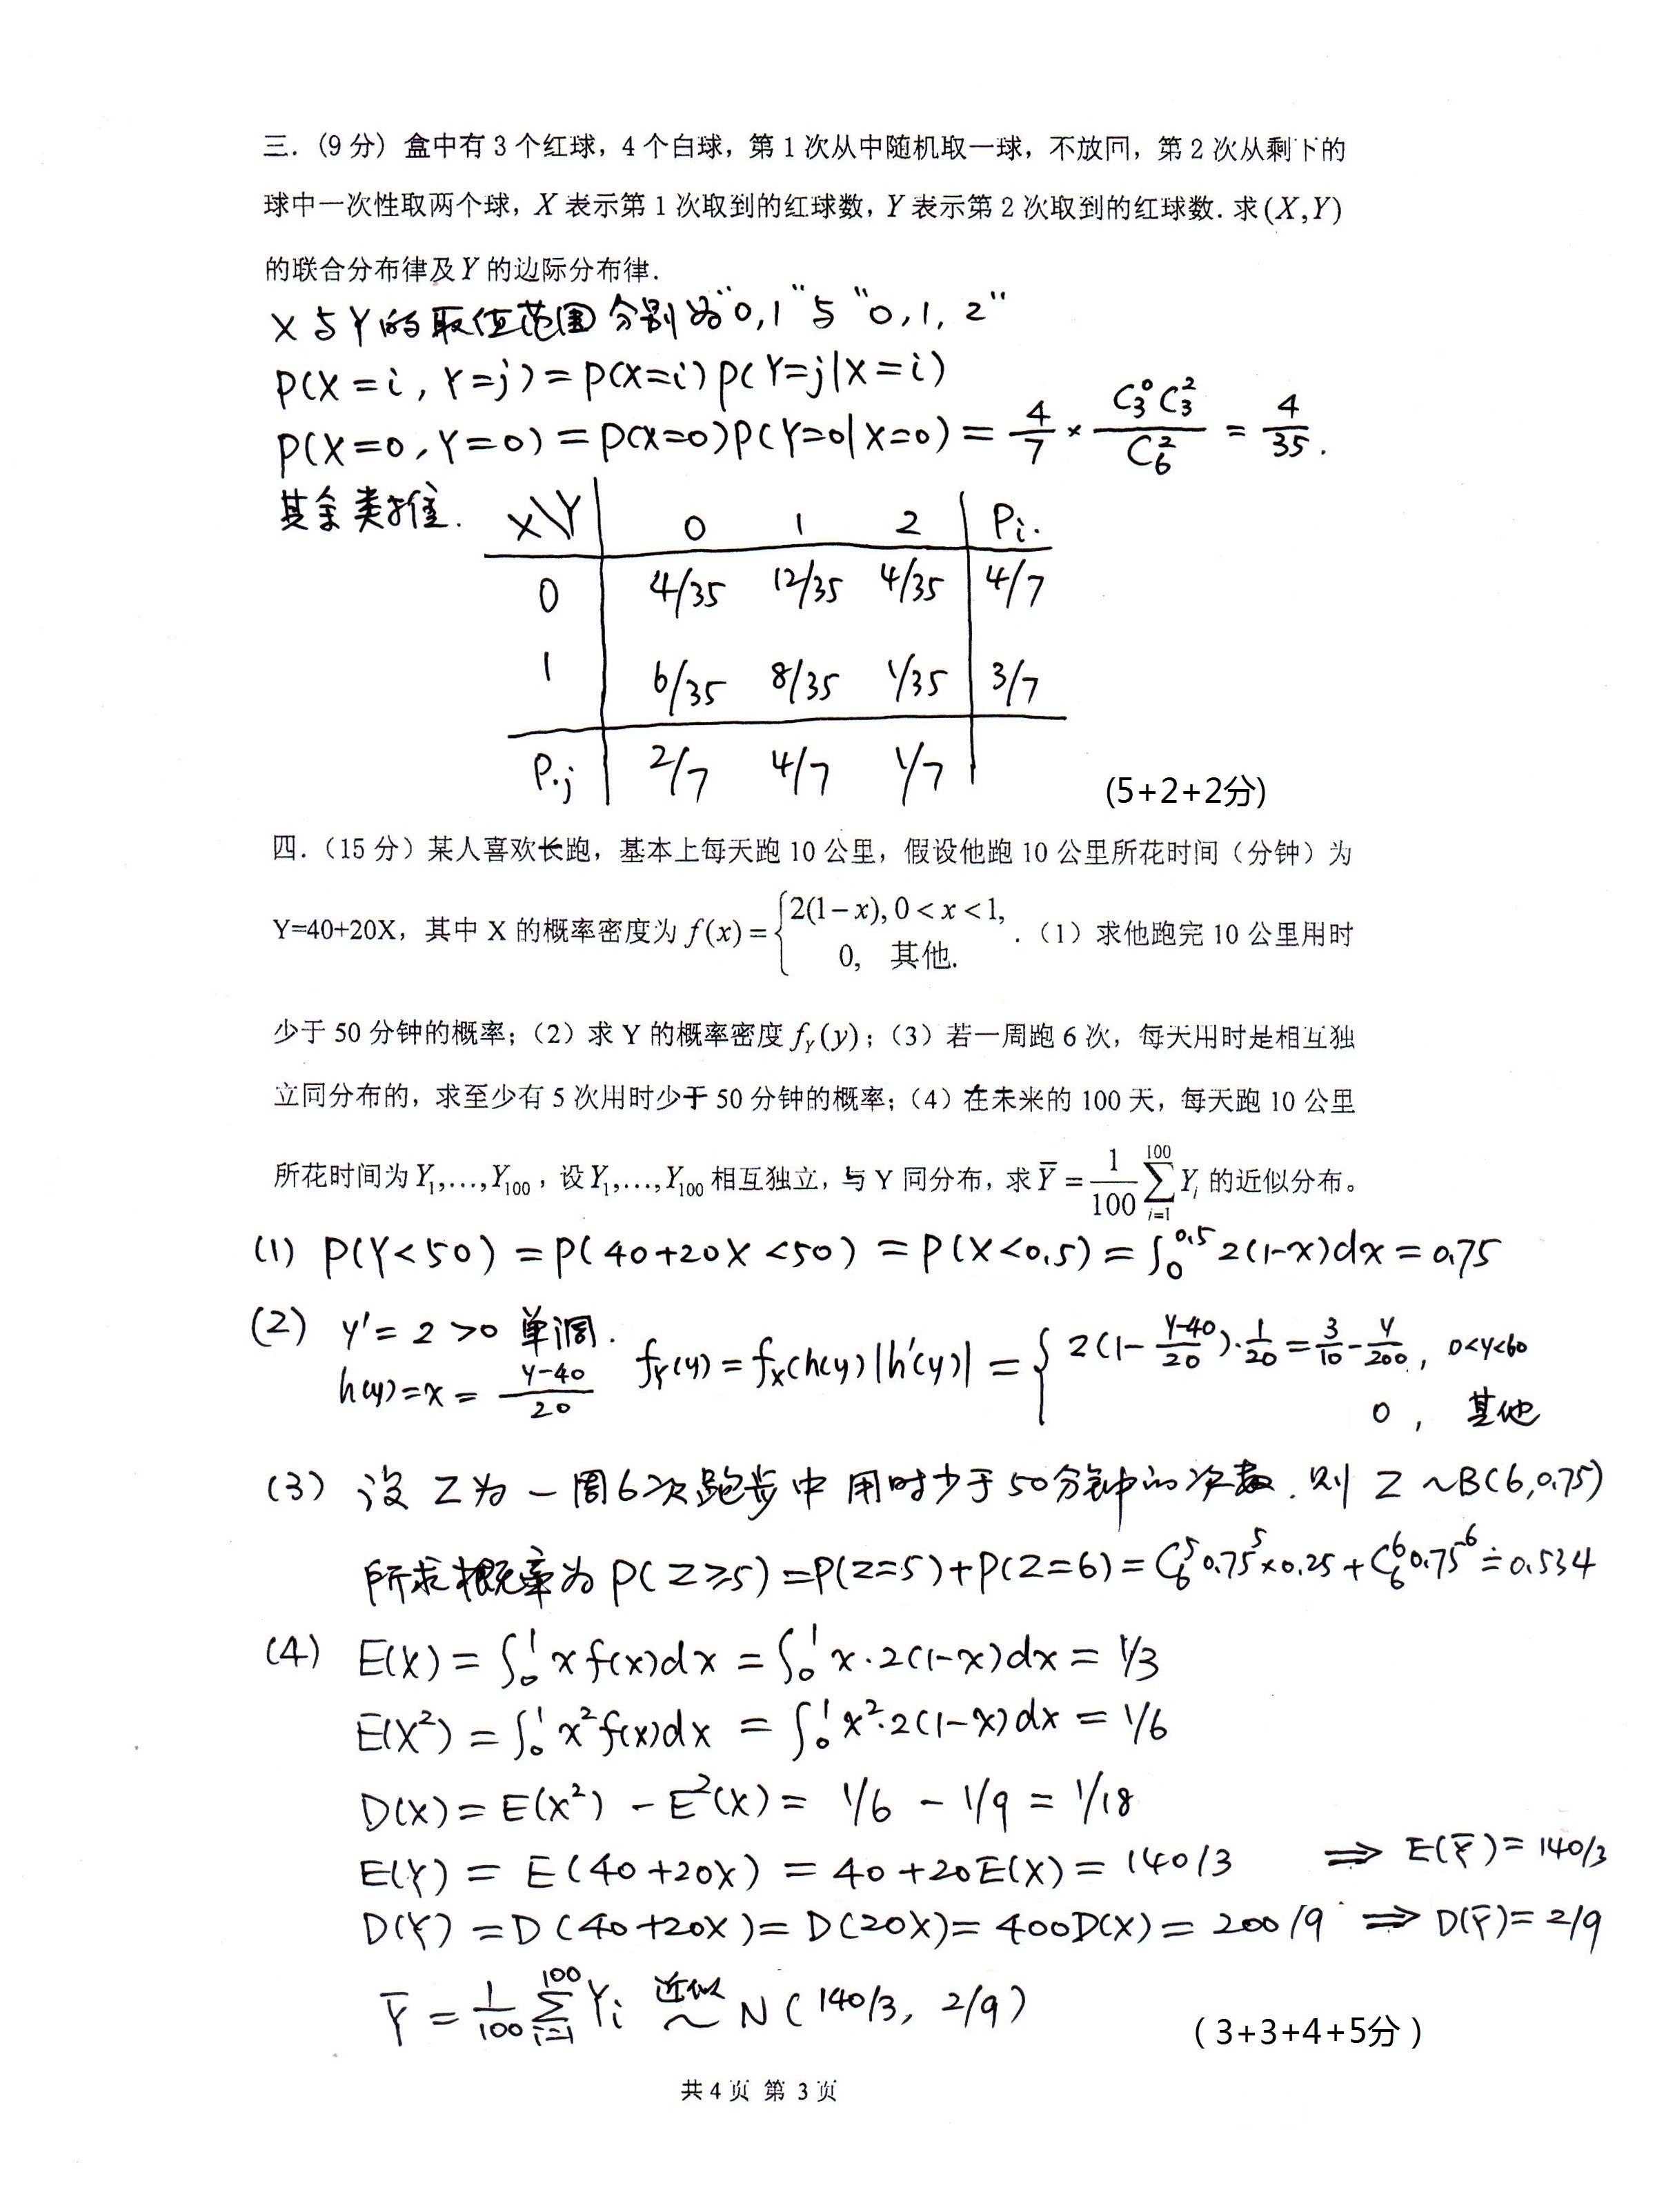 三. (9分) 盒中有3个红球，4个白球，第1次从中随机取一球，不放回，第2次从剩下的
球中一次性取两个球，X 表示第1次取到的红球数，Y 表示第2次取到的红球数. 求(X,Y)
的联合分布律及Y 的边际分布律.
X与Y的取值范围分别为"0,1"与"0,1,2"
P(X=i, Y=j)=P(X=i)P(Y=j|X=i)
P(X=0,Y=0)=P(X=0)P(Y=0|X=0)= 4/7 × C₃⁰C₃²/C₆² = 4/35.
其余类推.
X\Y 0 1 2 Pi.
0 4/35 12/35 4/35 4/7
1 6/35 8/35 1/35 3/7
P.j 2/7 4/7 1/7
(5+2+2分)
四.（15分）某人喜欢长跑，基本上每天跑10公里，假设他跑10公里所花时间（分钟）为
Y=40+20X，其中 X 的概率密度为 f(x)={2(1−x), 0<x<1, 0, 其他. .（1）求他跑完10公里用时
少于50分钟的概率;（2）求 Y 的概率密度 f_Y(y);（3）若一周跑6次，每天用时是相互独
立同分布的，求至少有5次用时少于50分钟的概率;（4）在未来的100天，每天跑10公里
所花时间为Y₁,…,Y₁₀₀，设Y₁,…,Y₁₀₀相互独立，与 Y 同分布，求Ȳ=1/100 ∑_{i=1}^{100} Y_i 的近似分布。
(1) P(Y<50)=P(40+20X<50)=P(X<0.5)=∫₀^0.5 2(1-x)dx=0.75
(2) y'=2>0 单调.
h(y)=x= (y-40)/20 f_Y(y)=f_X(h(y)|h'(y)|={2(1-(y-40)/20)·1/20=3/10-y/200, 0<y<60
0, 其他
(3) 设 Z为一周6次跑步中用时少于50分钟的次数. 则 Z~B(6,0.75)
所求概率为P(Z≥5)=P(Z=5)+P(Z=6)=C₆⁵0.75⁵×0.25+C₆⁶0.75⁶≐0.534
(4) E(X)=∫₀¹xf(x)dx=∫₀¹x·2(1-x)dx=1/3
E(X²)=∫₀¹x²f(x)dx=∫₀¹x²·2(1-x)dx=1/6
D(X)=E(X²)-E²(X)=1/6-1/9=1/18
E(Y)=E(40+20X)=40+20E(X)=140/3 ⇒ E(Ȳ)=140/3
D(Y)=D(40+20X)=D(20X)=400D(X)=200/9 ⇒ D(Ȳ)=2/9
Ȳ=1/100 ∑_{i=1}^{100} Yi 近似~ N(140/3, 2/9)
(3+3+4+5分)
共4页 第3页